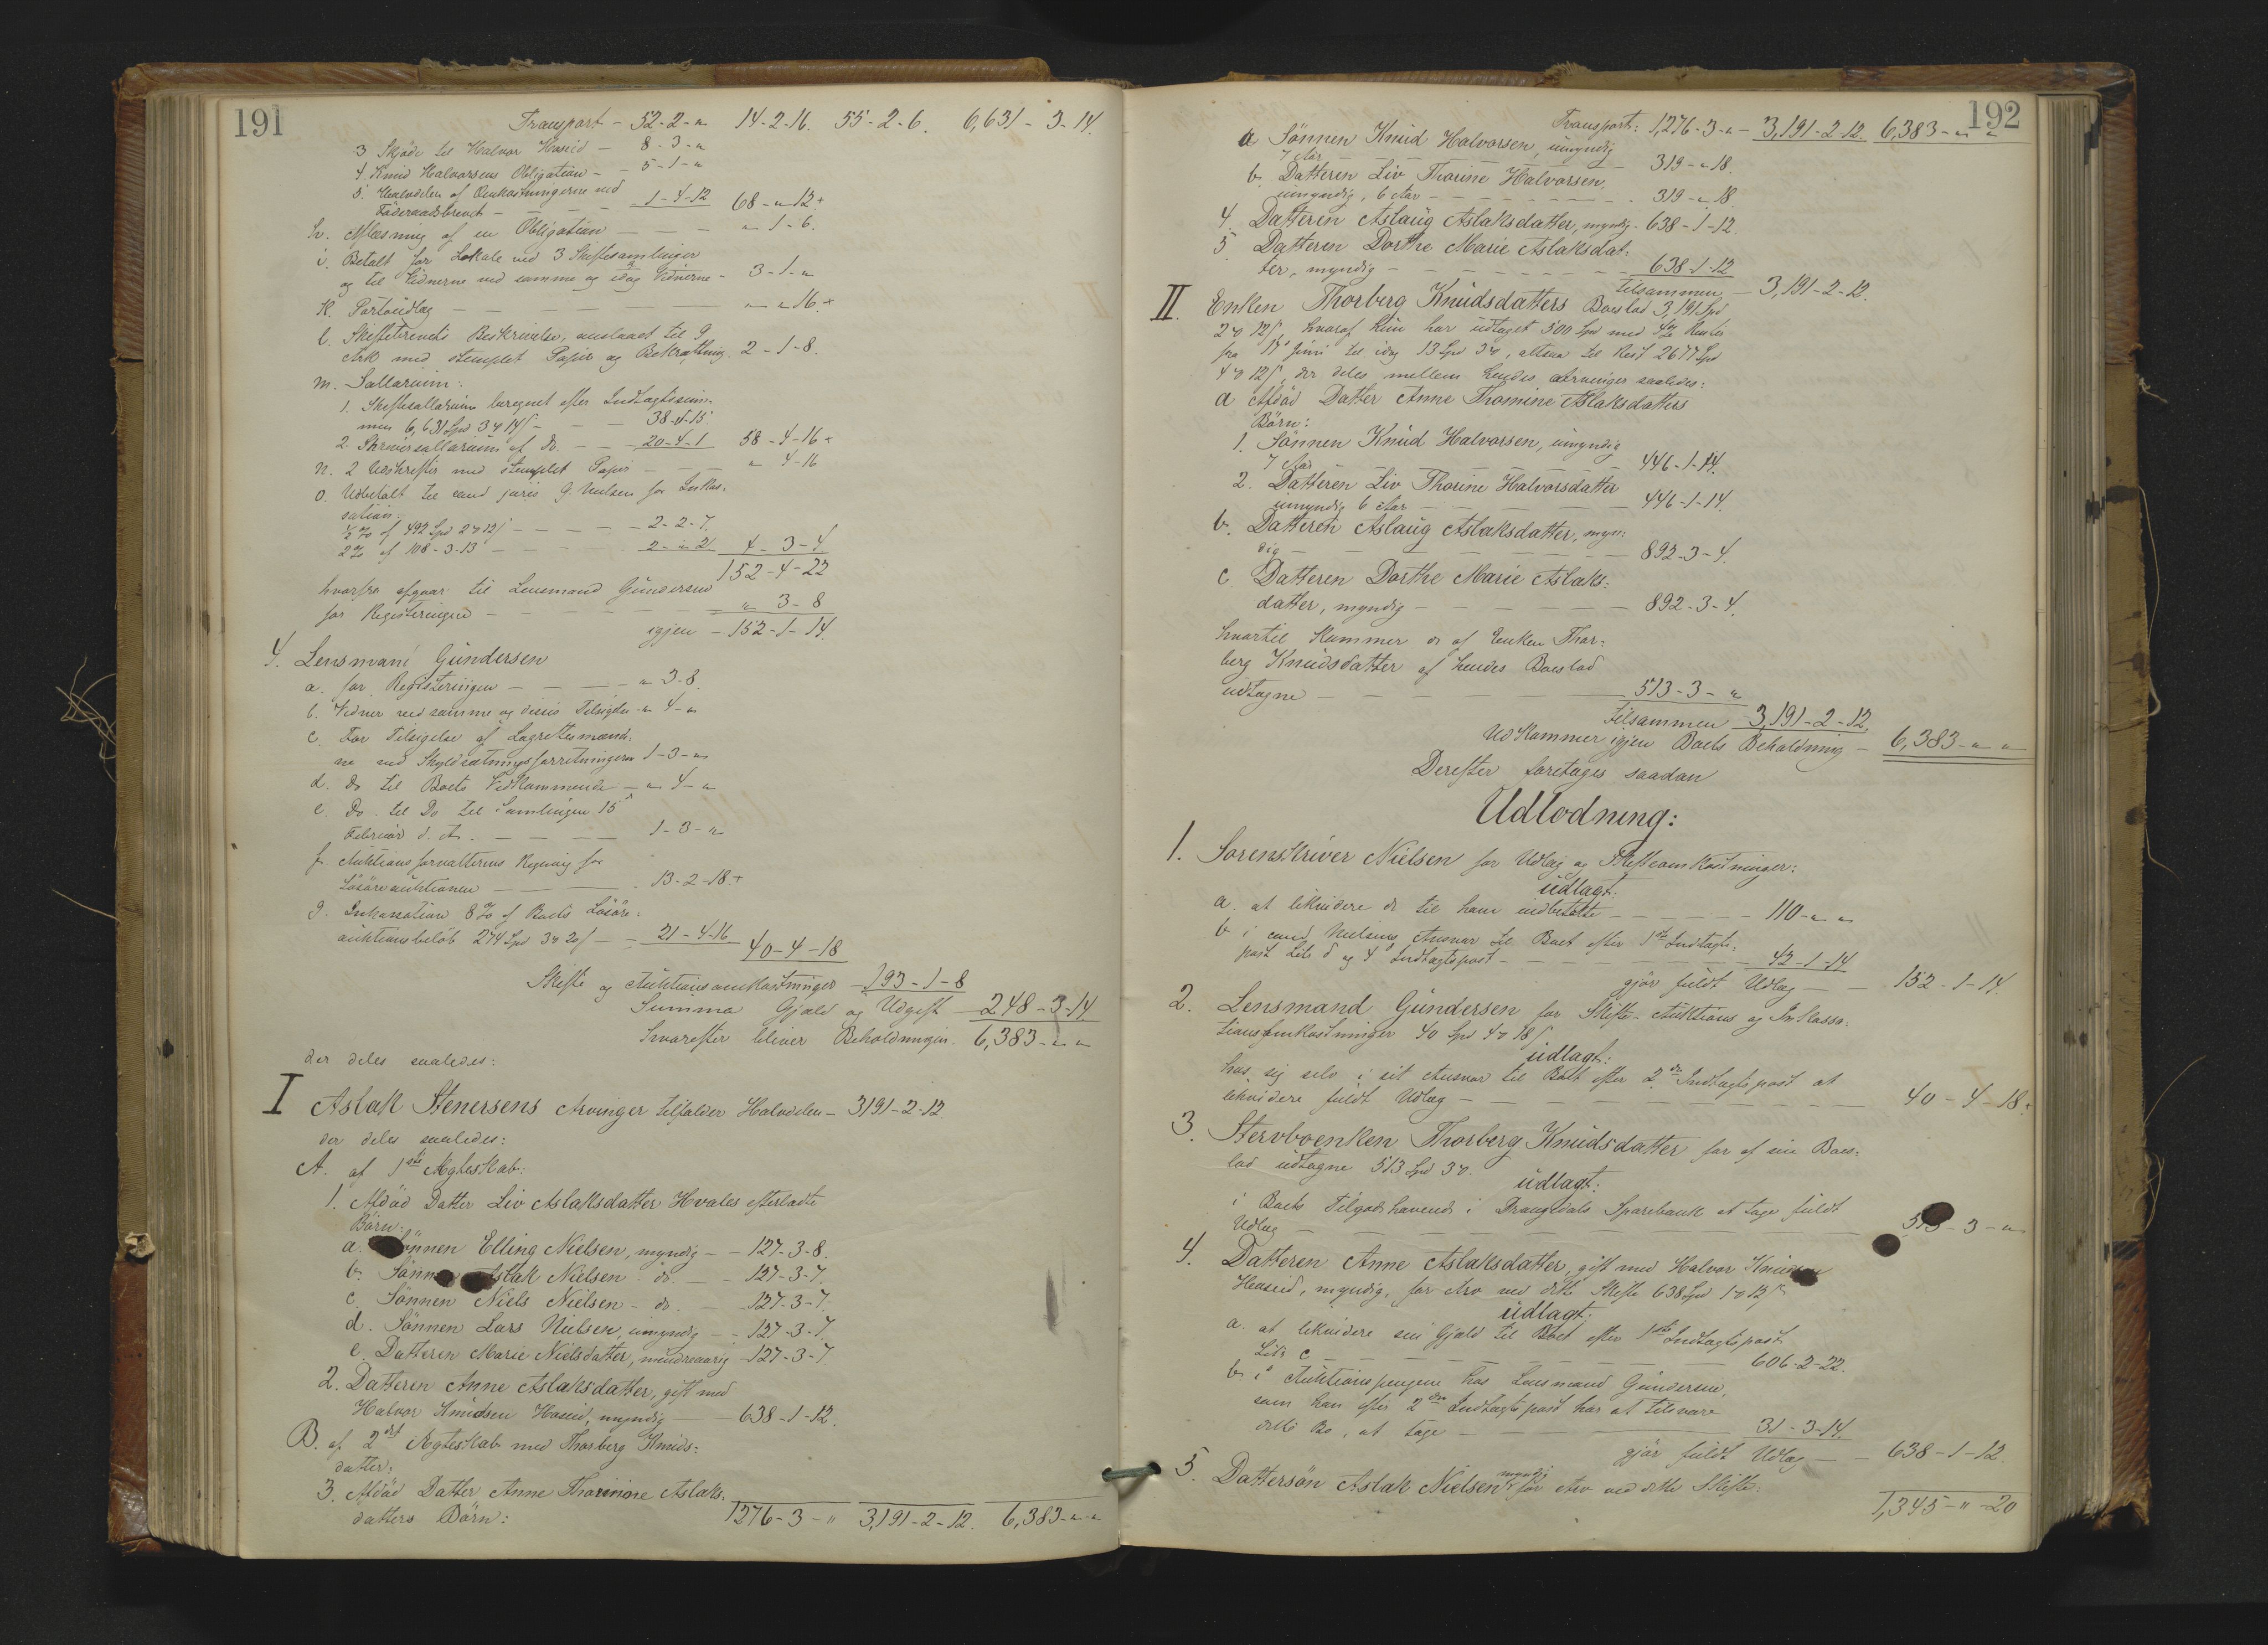 191
Transport - 52-2-" 14-2-16. 55-2-6. 6,631-3-14.
3 Skjøde til Halvor Hoseid - 8-3-"
4. Knud Halvorsens Obligation - 5-1-"
5. Halvdelen af Omkostningerne ved
Føderaadsbrevet - 1-4-12 68-"-12+
h. Aflæsning af en Obligation - "-1-6.
i. Betalt for Lokale ved 3 Skiftesamlinger
og til Vidnerne ved samme og idag Vidnerne - 3-1-"
k. Portoudlæg - "-"-16.+
l. Skiftebrevets Beskrivelse, anslaaet til 9
Ark med stemplet Papir og Bekræftning. 2-1-8.
m. Sallarium:
1. Skiftesallarium beregnet efter Indtægtssum-
men 6,631 Spd 3 # 14 ß - 38-4-15
2. Skriversallarium af do - 20-4-1 58-4-16+
n. 2 Udskrifter med stemplet Papir - "-4-16
o. Udbetalt til cand juris G. Nielsen for Inkas-
sation:
½ % af 492 Spd 2 # 12 ß - 2-2-7.
2 % af 108-3-13 - 2-"-21 4-3-4.
152-4-22
hvorfra afgaar til Lensmand Gundersen
for Registeringen - "-3-8
igjen - 152-1-14.
4. Lensmand Gundersen
a. for Registeringen - "-3-8.
b. Vidner ved samme og disses Tilsigelse - "-4-"
c. For Tilsigelse af Lagrettesmænd-
ne ved Skyldsætningsforretningen 1-3-"
d. do til Boets Vedkommende - "-4-"
e. Do. til Do til Samlingen 15de
Februar d. A. - 1-3-"
f. Auktionsforvalterens Regning for
Løsøreauktionen - 13-2-18+
g. Inkassation 8 % af Boets Løsøre-
auktionsbeløb 274 Spd 3 # 20 ß - 21-4-16 40-4-18
Skifte og Auktionsomkostninger - 193-1-8
Summa Gjæld og Udgift - 248-3-14.
hvorefter bliver Beholdningen. 6,383-"-"
der deles saaledes:
I Aslak Stenersens Arvinger tilfalder Halvdelen - 3191-2-12
der deles saaledes:
A. af 1ste Ægteskab:
1. Afdød Datter Liv Aslaksdatter Hvales efterladte
Børn:
a. Sønnen Elling Nielsen, myndig - 127-3-8.
b. Sønnen Aslak Nielsen - do. - 127-3-7.
c. Sønnen Niels Nielsen - do. - 127-3-7.
d. Sønnen Lars Nielsen, umyndig - 127-3-7.
e. Datteren Marie Nielsdatter, mindreaarig - 127-3-7
2. Datteren Anne Aslaksdatter, gift med
Halvor Knudsen Hoseid, myndig - 638-1-12.
B. af 2det Ægteskab med Thorberg Knuds-
datter:
3. Afdød Datter Anne Thomine Aslaks-
datters Børn: 1276-3-" 3,191-2-12. 6,383-"-"
192
Transport: 1,276-3-" - 3,191-2-12. 6,383-"-"
a Sønnen Knud Halvorsen, umyndig
7 Aar - 319-"-18.
b. Datteren Liv Thorine Halvorsen,
umyndig, 6 Aar - 319-"-18.
4. Datteren Aslaug Aslaksdatter, myndig. 638-1-12.
5 Datteren Dorthe Marie Aslaksdat-
ter, myndig - 638-1-12
tilsammen - 3,191-2-12.
II. Enken Thorberg Knudsdatters Boeslod 3,191 Spd
2 # 12 ß, hvoraf hun har udtaget 500 Spd med 4 % Renter
fra 17de Juni til idag 13 Spd 3 #, altsaa til Rest 2677 Spd
4 # 12 ß, der deles mellem hendes Arvinger saaledes:
a Afdød Datter Anne Thomine Aslaksdatters
Børn:
1. Sønnen Knud Halvorsen, umyndig
7 Aar - 446-1-14.
2. Datteren Liv Thorine Halvorsdatter
umyndig 6 Aar - 446-1-14.
b. Datteren Aslaug Aslaksdatter, myn-
dig - 892-3-4.
c. Datteren Dorthe Marie Aslaks-
datter, myndig - 892-3-4.
hvortil kommer de af Enken Thor-
berg Knudsdatter af hendes Boeslod
udtagne - 513-3-"
tilsammen 3,191-2-12.
Udkommer igjen Boets Beholdning - 6,383-"-"
Derefter foretages saadan
Udlodning:
1. Sorenskriver Nielsen for Udlæg og Skifteomkostninger:
udlagt:
a. at likvidere de til ham indbetalte - 110-"-"
b i cand Nielsens Ansvar til Boet efter 1ste Indtægts-
post Litr d og 4de Indtægtspost - 42-1-14
gjør fuldt Udlæg - 152-1-14.
2. Lensmand Gundersen for Skifte- Auktions og Inkassa-
tionsomkostninger 40 Spd 4 # 18 ß
udlagt:
hos sig selv i sit Ansvar til Boet efter 2den Indtægtspost at
likvidere fuldt Udlæg - 40-4-18+
3. Stervboenken Thorberg Knudsdatter for af sin Boes-
lod udtagne 513 Spd 3 #.
udlagt:
i Boets Tilgodehavende i Drangedals Sparebank at tage fuldt
Udlæg - 513-3-"
4. Datteren Anne Aslaksdatter, gift med Halvor Knudsen
Hoseid, myndig, for Arv ved dette Skifte 638 Spd 1 # 12 ß
udlagt:
a. at likvidere sin Gjæld til Boet efter 1ste Indtægtspost
Litr c - 606-2-22.
b. i Auktionspengene hos Lensmand Gundersen,
som han efter 2den Indtægtspost har at tilsvare
dette Bo, at tage - 31-3-14.
gjør fuldt Udlæg - 638-1-12.
5. Dattersøn Aslak Nielsen myndig for Arv ved dette Skifte:
1,345-"-20